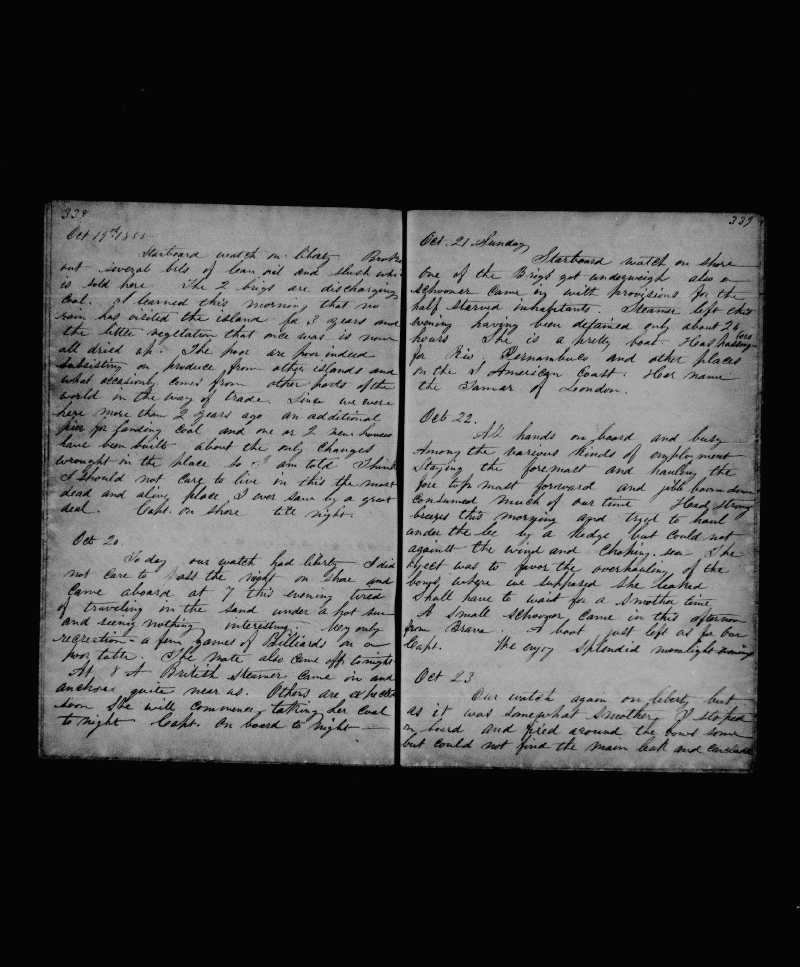 338
Oct 19th 18
Starboard watch on liberty Broke
out several bls of lean oil and slush whi
is sold here The 2 brigs are discharging
Coal. I learned this morning that no
rain has visited the island for 3 years and
the little vegetation that once was is now
all dried up. The poor are poor indeed
subsisting on produce from other islands and
what occasionly comes from other ports of the
world in the way of trade. Since we were
here more than 2 years ago an additional
pier for landing coal and one or 2 new houses
have been built about the only changes
wrought in the place so I am told I think
I should not care to live in this the most
dead and alive place I ever saw by a great
deal. Capt. on shore till night.
Oct 20.
To day our watch had liberty I did
not care to pass the night on shore and
came aboard at 7 this evening tired
of traveling in the sand under a hot sun
and seeing nothing interesting. My only
recreation a few games of Billiards on a
poor table. The mate also came off tonight
At 8 A British Steamer came in and
anchored quite near us. Others are expected
soon She will commence taking her coal
to night Capt. On board to night
339
Oct. 21 Sunday
Starboard watch on shore
One of the Brigs got underweigh also a
schooner came in with provisions for the
half starved inhabitants. Steamer left this
evening having been detained only about 24
hours She is a pretty boat. Has passengers
for Rio, Pernambuco and other places
on the S American Coast. Her name
the Tamar of London.
Oct 22.
All hands on board and busy
Among the various kinds of employment
Staying the foremast and hauling the
fore top mast forward and jibb boom down
consumed much of our time Had strong
breezes this morning and tryed to haul
under the lee by a Kedge but could not
against the wind and choping sea The
object was to favor the overhauling of the
bows where we supposed she leaked
Shall have to wait for a smother time
A small schooner came in this afternoon
from Brava. A boat just left as for our
Capt. We enjoy splendid moonlight evenings
Oct 23
Our watch again on liberty but
as it was somewhat smother I stoped
on board and fixed around the bows some
but could not find the main leak and